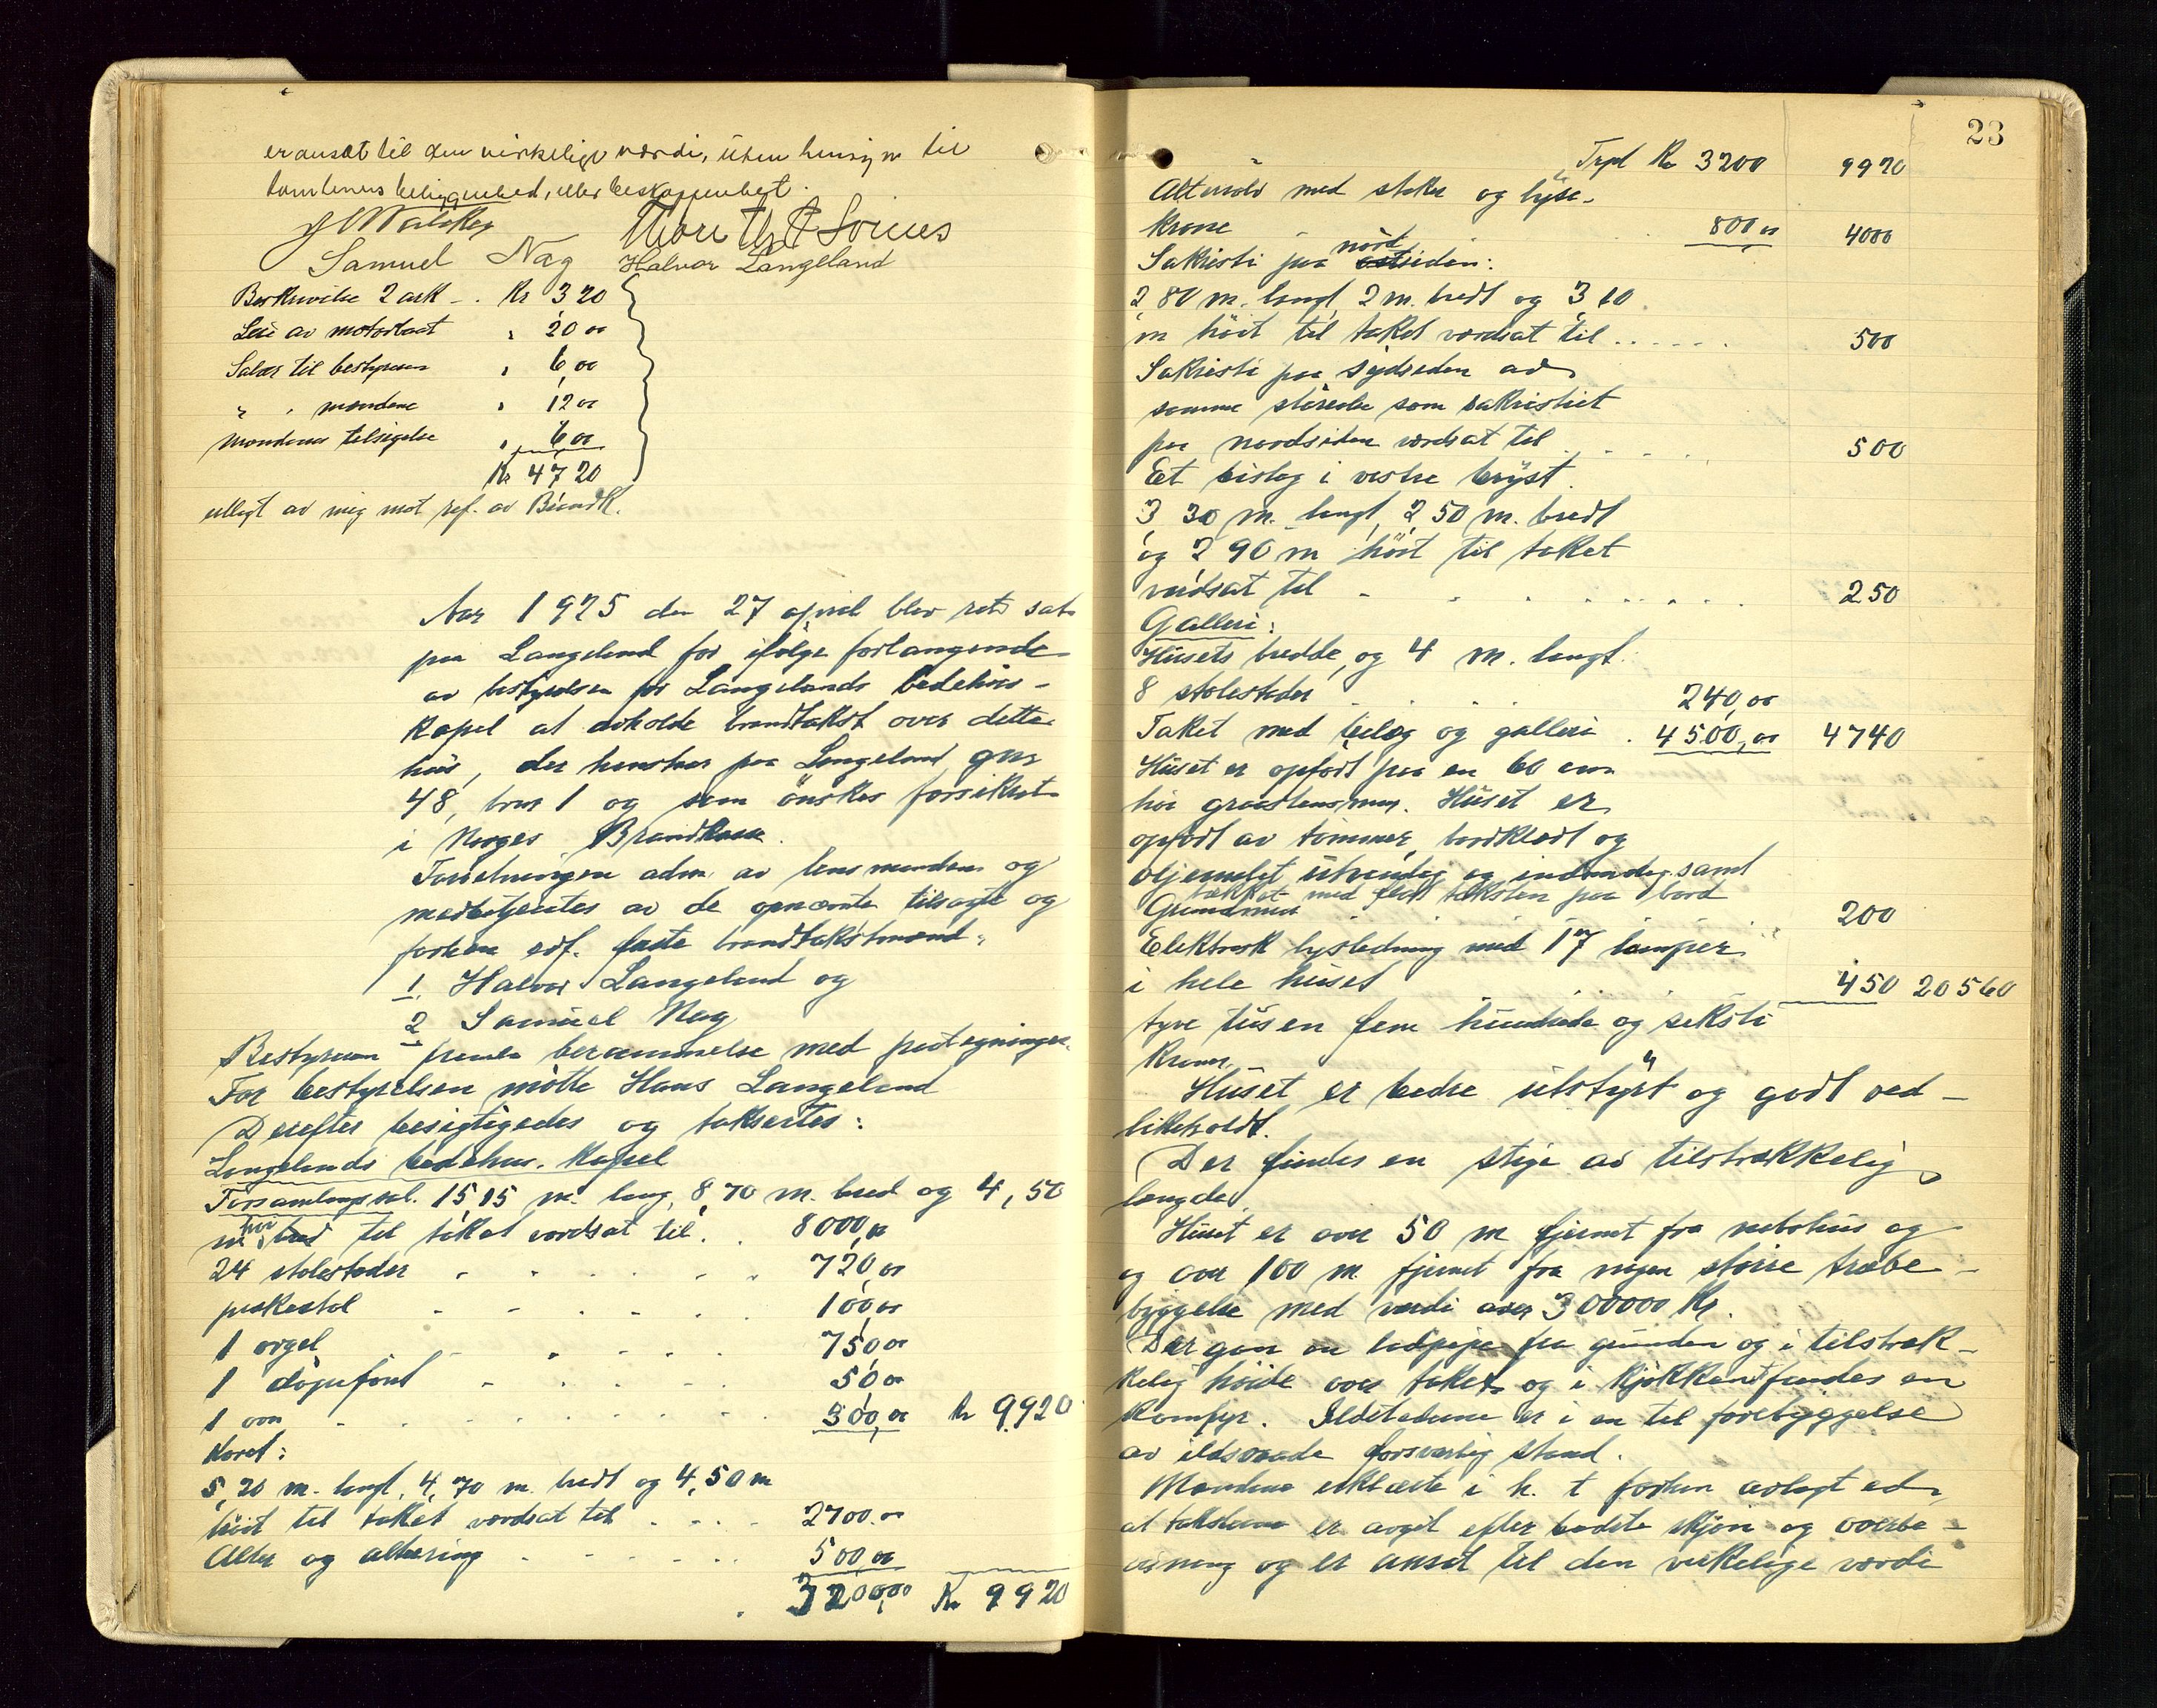 er ansat til den virkelige værdi, uten hensyn til
tomtenens beliggenhed, eller beskaffenhet.
Samuel Nag Halvor Langeland
Beskrivelse 2 ark - . Kr 3 20
Leie av motorbaat " 20 00
Salær til bestyreren " 6,00
" " mændene " 12 00
Mændenes tilsigelse " 6 00
Kr 47 20
utlagt av mig mot ref. av Brandk.
Aar 1925 den 27 april blev ret sat
paa Langeland for ifølge forlangende
av bestyrelsen for Langelands bedehus-
kapel at avholde brandtakst over dette
hus, der henstaar paa Langeland gnr
48, brnr 1 og som ønskes forsikret
i Norges Brandkasse.
Forretningen adm. av lensmanden og
medbetjentes av de opnævnte tilsagte og
forhen edf. faste brandtakstmænd:
1. Halvor Langeland og
2 Samuel Nag
Bestyreren freml. berammelse med paategninger.
For bestyrelsen møtte Hans Langeland
Derefter besigtigedes og taksertes:
Langelands bedehus. Kapel
Forsamlingssal. 15,15 m. lang, 8,70 m. bred og 4,50
m høi bred til taket værdsat til. . 8000,00
24 stolestader - - . . - . 720,00
prækestol - - . . . 100,00
1 orgel - . . . . 750,00
1 døpefont - . . . . 50,00
1 ovn - . . . . . . . 300,00 Kr 9920
Koret:
5,20 m. langt, 4,70 m. bredt og 4,50 m
høit til taket værdsat til . . . - 2700.00
Alter og altering . - . . . . 500 00
3200,00 Kr 9920
23
Trpt Kr 3200 9920
Altersølv med staker og lyse-
krone - - . . 800 00 4000
Sakristi paa nord østsiden:
2,80 m. langt, 2 m. bredt og 3,10
m høit til taket værdsat til . . . . . . 500
Sakristi paa sydsiden av
samme størrelse som sakristiet
paa nordsiden værdsat til . . . . . 500
Et bislag i vestre bryst.
3,30 m. langt, 2,50 m. bredt
og 2,90 m høit til taket
værdsat til - . . . . . . . . 250
Galleri:
Husets bredde, og 4 m. langt.
8 stolestader . . . . . 240,00
Taket med beslag og galleri . 4500,00 4740
Huset er opført paa en 60 cm
høi graastensmur. Huset er
opført av tømmer, bordklædt og
oljemalet utvendig og indvendig samt
tækket med taksten paa bord
Grundmur . . . . . 200
Elektrisk lysledning med 17 lamper
i hele huset 450 20560
tyve tusen fem hundrede og seksti
kroner.
Huset er bedre utstyrt og godt ved-
likeholdt.
Der findes en stige av tilstrækkelig
længde.
Huset er over 50 m fjernet fra nabohus og
og over 100 m fjernet fra nogen større træbe-
byggelse med værdi over 300000 Kr.
Der gaar en pipe fra grunden og i tilstræk-
kelig høide over taket og i kjøkkenet findes en
komfyr. Ildstederne er i en til forebyggelse
av ildsvaade forsvarlig stand.
Mændene erklærte i h. t. forhen avlagt ed,
at taksterne er avgit efter bedste skjøn og overbe-
visning og er ansat til den virkelige værdi